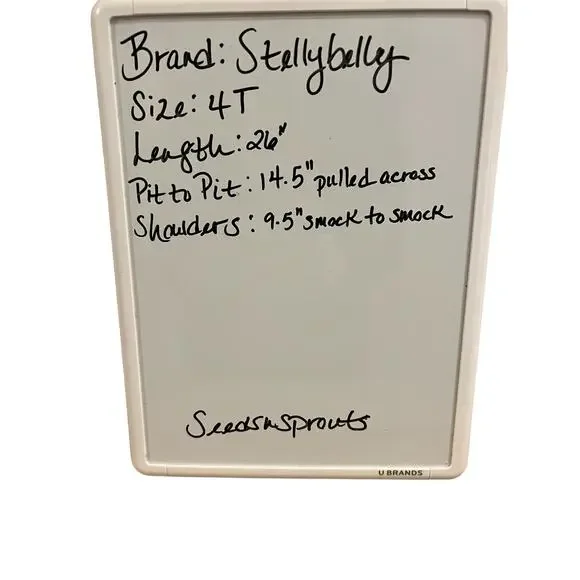 Brand: Stellybelly
Size: 4T
Length: 26"
Pit to Pit: 14.5" pulled across
Shoulders: 9.5" smock to smock
Seedsnsprouts
U BRANDS